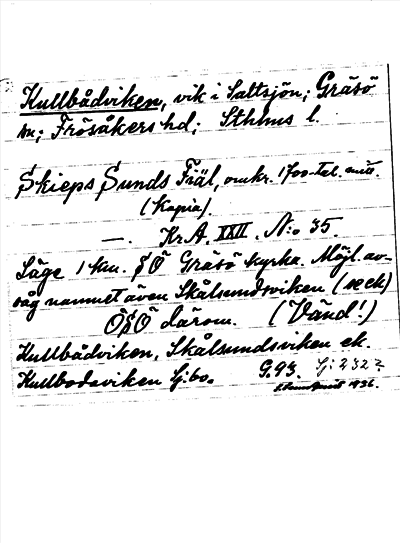 Kullbådviken, vik i Saltsjön; Gräsö
sn; Frösåkers hd; Sthlms l.
Skieps Sunds Fräl, omkr. 1700-tal. mitt.
(Kopia).
—. Kr.A. XXII. N:o 35.
Läge 1 km. SÖ Gräsö kyrka. Möjl. av-
såg namnet även Skålsundsviken (se ek)
ÖSÖ därom. (Vänd!)
Kullbådviken, Skålsundsviken ek.
Kullbodaviken Sj:bo. G.93. Sj:232?
1936.